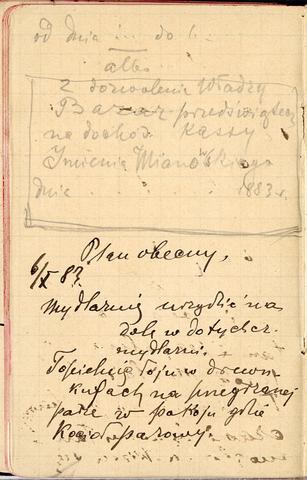 od dnia .. do ..
albo
z dozwolenia Władzy
Bazar przedświątecz
na dochód Kassy
Imienia Mianowskiego
dnia . . . . . 1883 r.
Plan obecny.
6/X 83.
Mydlarnię urządzić na
dole w dotychcz.
mydlarni.
Topielnię łoju w drewn
kufach na przegrzanej
parze w pokoju gdzie
Kocioł parowy.